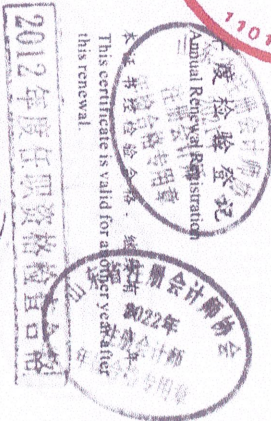 年度检验登记
Annual Renewal Registration
本证书经检验合格，继续有效一年。
This certificate is valid for another year after
this renewal.
2012年度任职资格检查合格
山东省注册会计师协会
2022年
注册会计师
年检合格专用章
1101